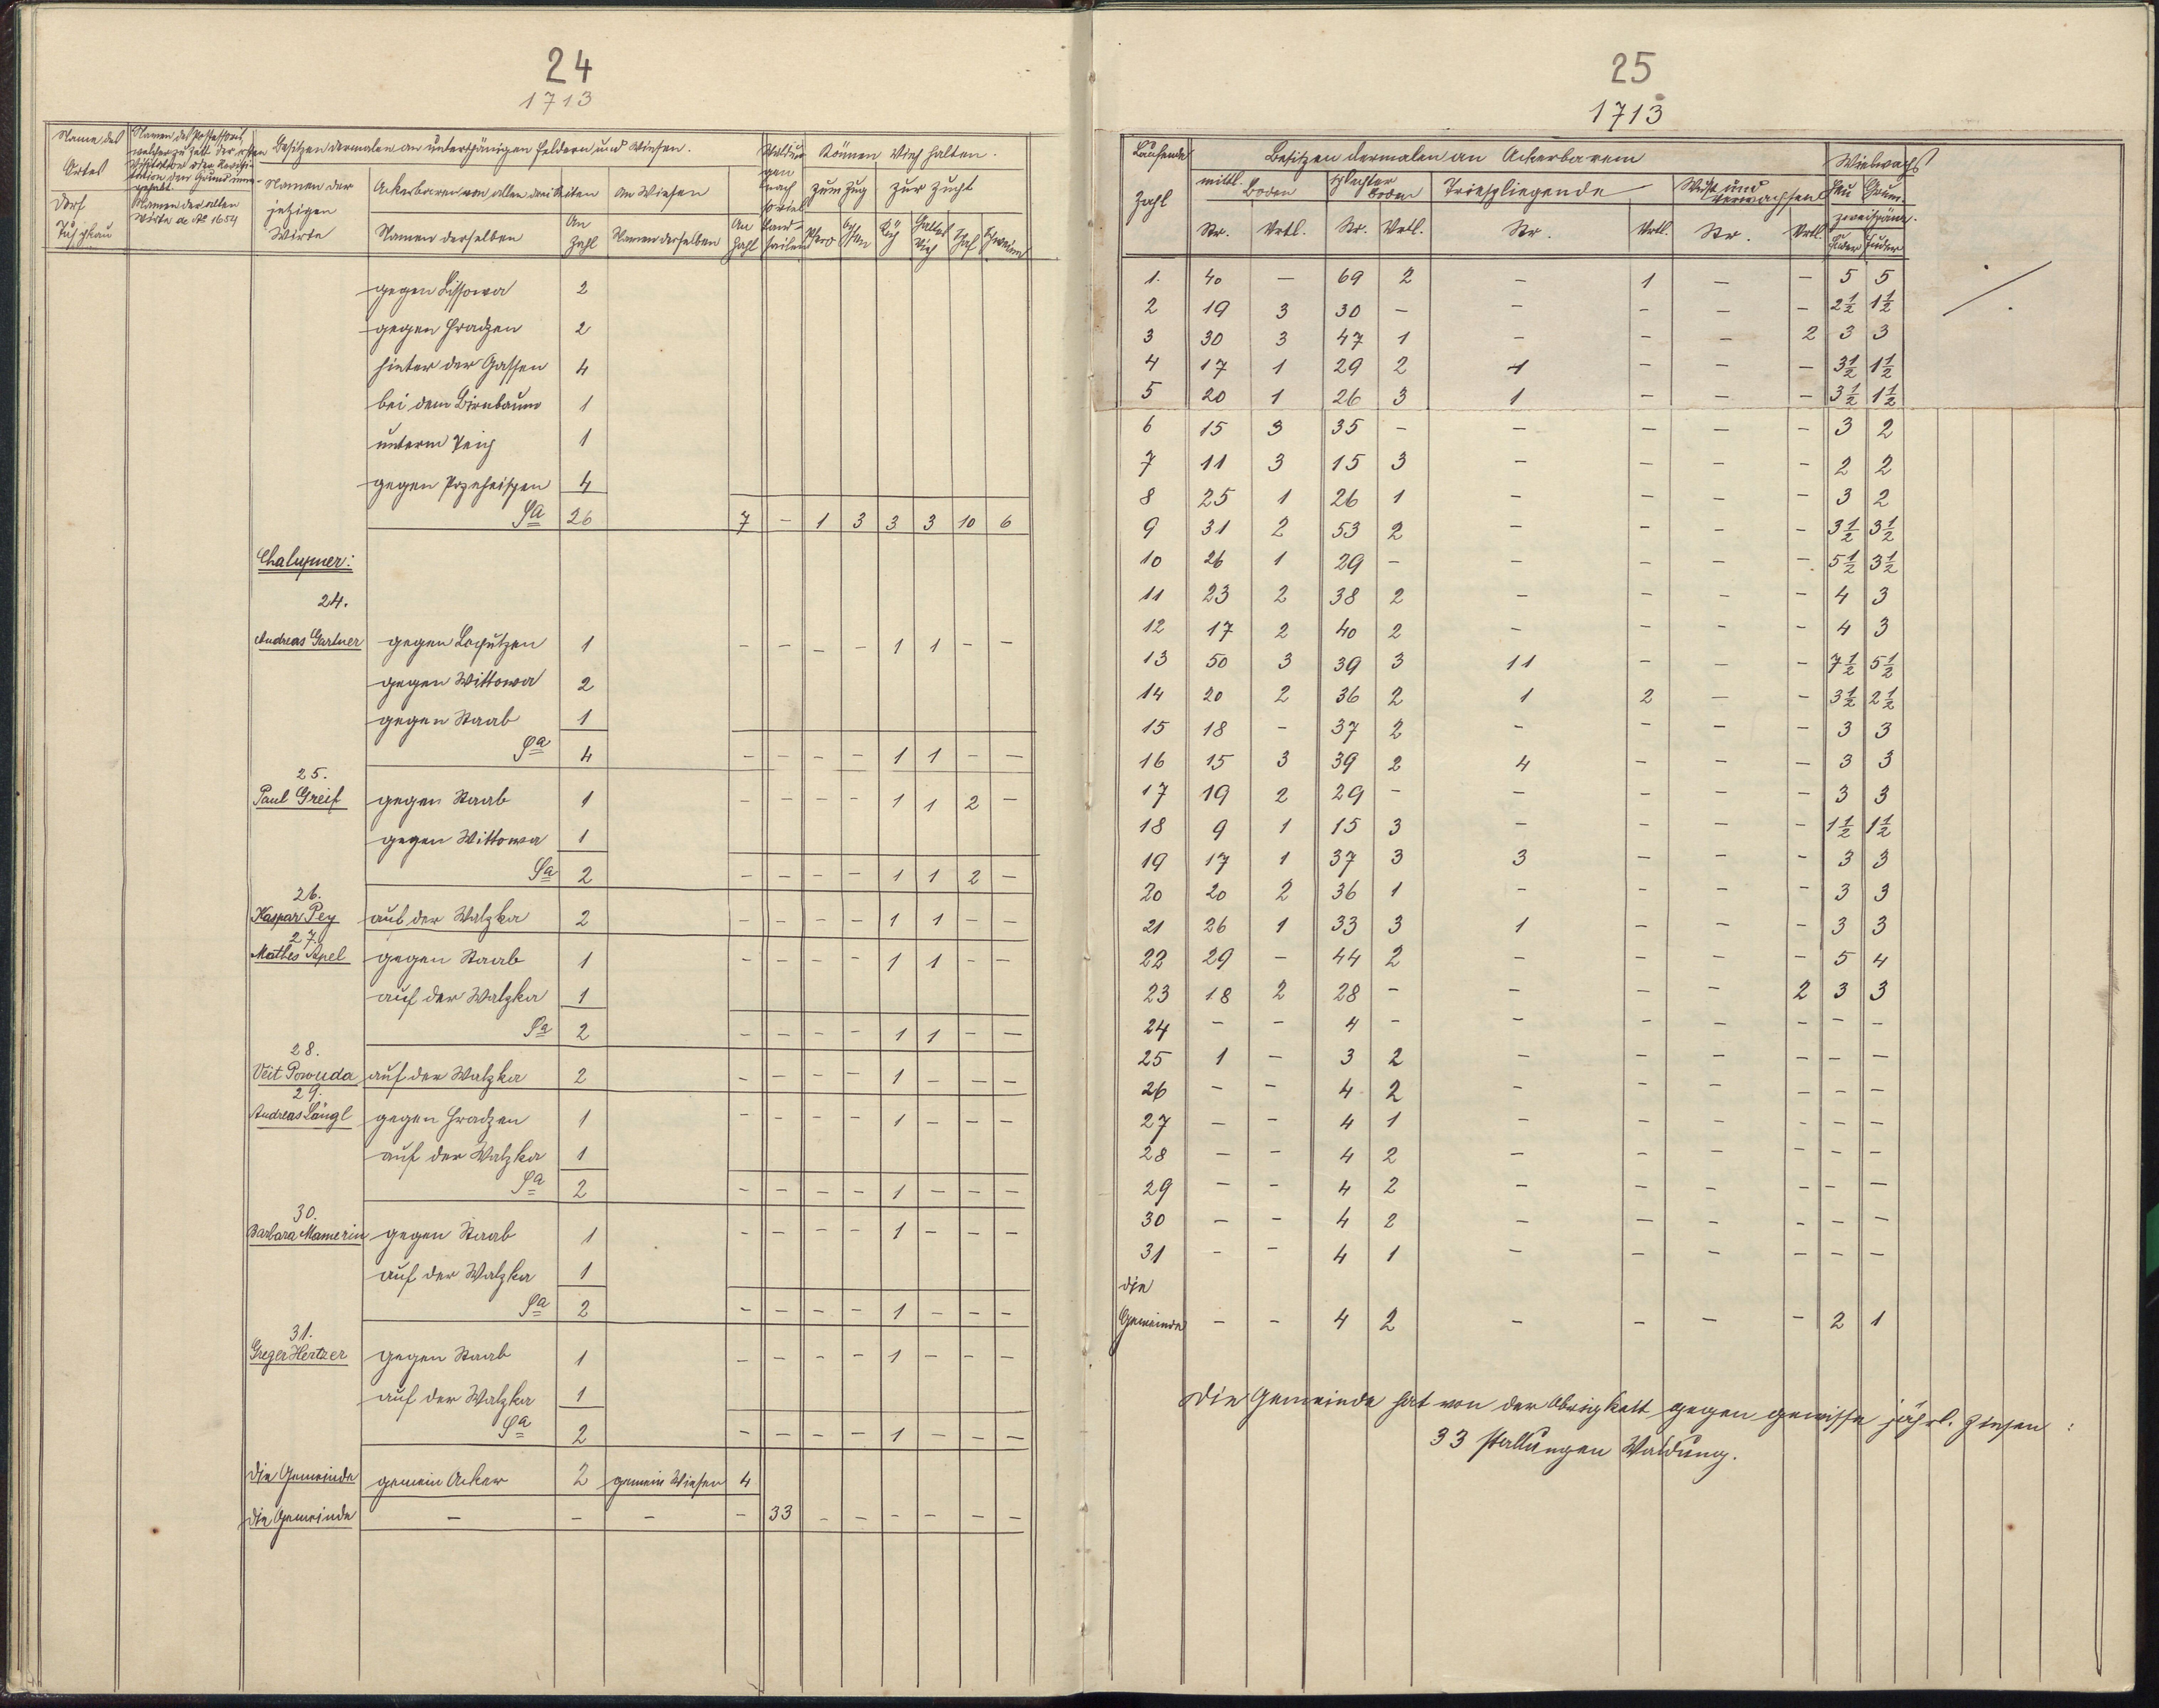 24
1713
Name des
Ortes
Dorf
Tuschkau
Namen der alten
Wirte de Ao 1654
Besitzen dermalen an unterthänigen Feldern und Wiesen.
Namen der
jetzigen
Wirte
Ackerbaren von allen drei Seiten
An Wiesen
Namen derselben
An
Zahl
Namen derselben
An
Zahl
Können Vieh halten.
zum Zug
zur Zucht
gegen Lissowa 2
gegen Hradzen 2
hinter der Gassen 4
bei dem Birnbaum 1
unterm Teich 1
gegen Przeheischen 4
Sa 26 7 – 1 3 3 3 10 6
Chalupner:
24.
Andreas Gartner gegen Lochutzen 1 – – – – 1 1 – –
gegen Wittowa 2
gegen Staab 1
Sa 4 – – – – 1 1 – –
25.
Paul Greif gegen Staab 1 – – – – 1 1 2 –
gegen Wittowa 1
Sa 2 – – – – 1 1 2 –
26.
Kaspar Pey auf der Watzka 2 – – – – 1 1 – –
27.
Mathes Apel gegen Staab 1 – – – – 1 1 – –
auf der Watzka 1
Sa 2 – – – – 1 1 – –
28.
Veit Powuda auf der Watzka 2 – – – – 1 – – –
29.
Andreas Längl gegen Hradzen 1 – – – – 1 – – –
auf der Watzka 1
Sa 2 – – – – 1 – – –
30.
Barbara Mamerin gegen Staab 1 – – – – 1 – – –
auf der Watzka 1
Sa 2 – – – – 1 – – –
31.
Greger Hertzer gegen Staab 1 – – – – 1 – – –
auf der Watzka 1
Sa 2 – – – – 1 – – –
die Gemeinde gemein Acker 2 gemein Wiesen 4
die Gemeinde – – – – 33 – – – – – –
25
1713
Laufende
Zahl
Besitzen dermalen an Ackerbarem
Wiebwachs
mittl. Boden
schlechter Boden
Trieschliegende
Wüst und verwachsen
Heu
Grum.
zweispänn.
Str. Vrtl. Str. Vrtl. Str. Vrtl. Str. Vrtl. Fuder Fuder
1. 40 – 69 2 – 1 – – 5 5
2 19 3 30 – – – – – 2½ 1½
3 30 3 47 1 – – – 2 3 3
4 17 1 29 2 1 – – – 3½ 1½
5 20 1 26 3 1 – – – 3½ 1½
6 15 3 35 – – – – – 3 2
7 11 3 15 3 – – – – 2 2
8 25 1 26 1 – – – – 3 2
9 31 2 53 2 – – – – 3½ 3½
10 26 1 29 – – – – – 5½ 3½
11 23 2 38 2 – – – – 4 3
12 17 2 40 2 – – – – 4 3
13 50 3 39 3 11 – – – 7½ 5½
14 20 2 36 2 1 2 – – 3½ 2½
15 18 – 37 2 – – – – 3 3
16 15 3 39 2 4 – – – 3 3
17 19 2 29 – – – – – 3 3
18 9 1 15 3 – – – – 1½ 1½
19 17 1 37 3 3 – – – 3 3
20 20 2 36 1 – – – – 3 3
21 26 1 33 3 1 – – – 3 3
22 29 – 44 2 – – – – 5 4
23 18 2 28 – – – – 2 3 3
24 – – 4 – – – – – – –
25 1 – 3 2 – – – – – –
26 – – 4 2 – – – – – –
27 – – 4 1 – – – – – –
28 – – 4 2 – – – – – –
29 – – 4 2 – – – – – –
30 – – 4 2 – – – – – –
31 – – 4 1 – – – – – –
die
Gemeinde – – 4 2 – – – – 2 1
Die Gemeinde hat von der Obrigkeit gegen gewisse jährl. Zinsen:
33 Stallungen Waldung.